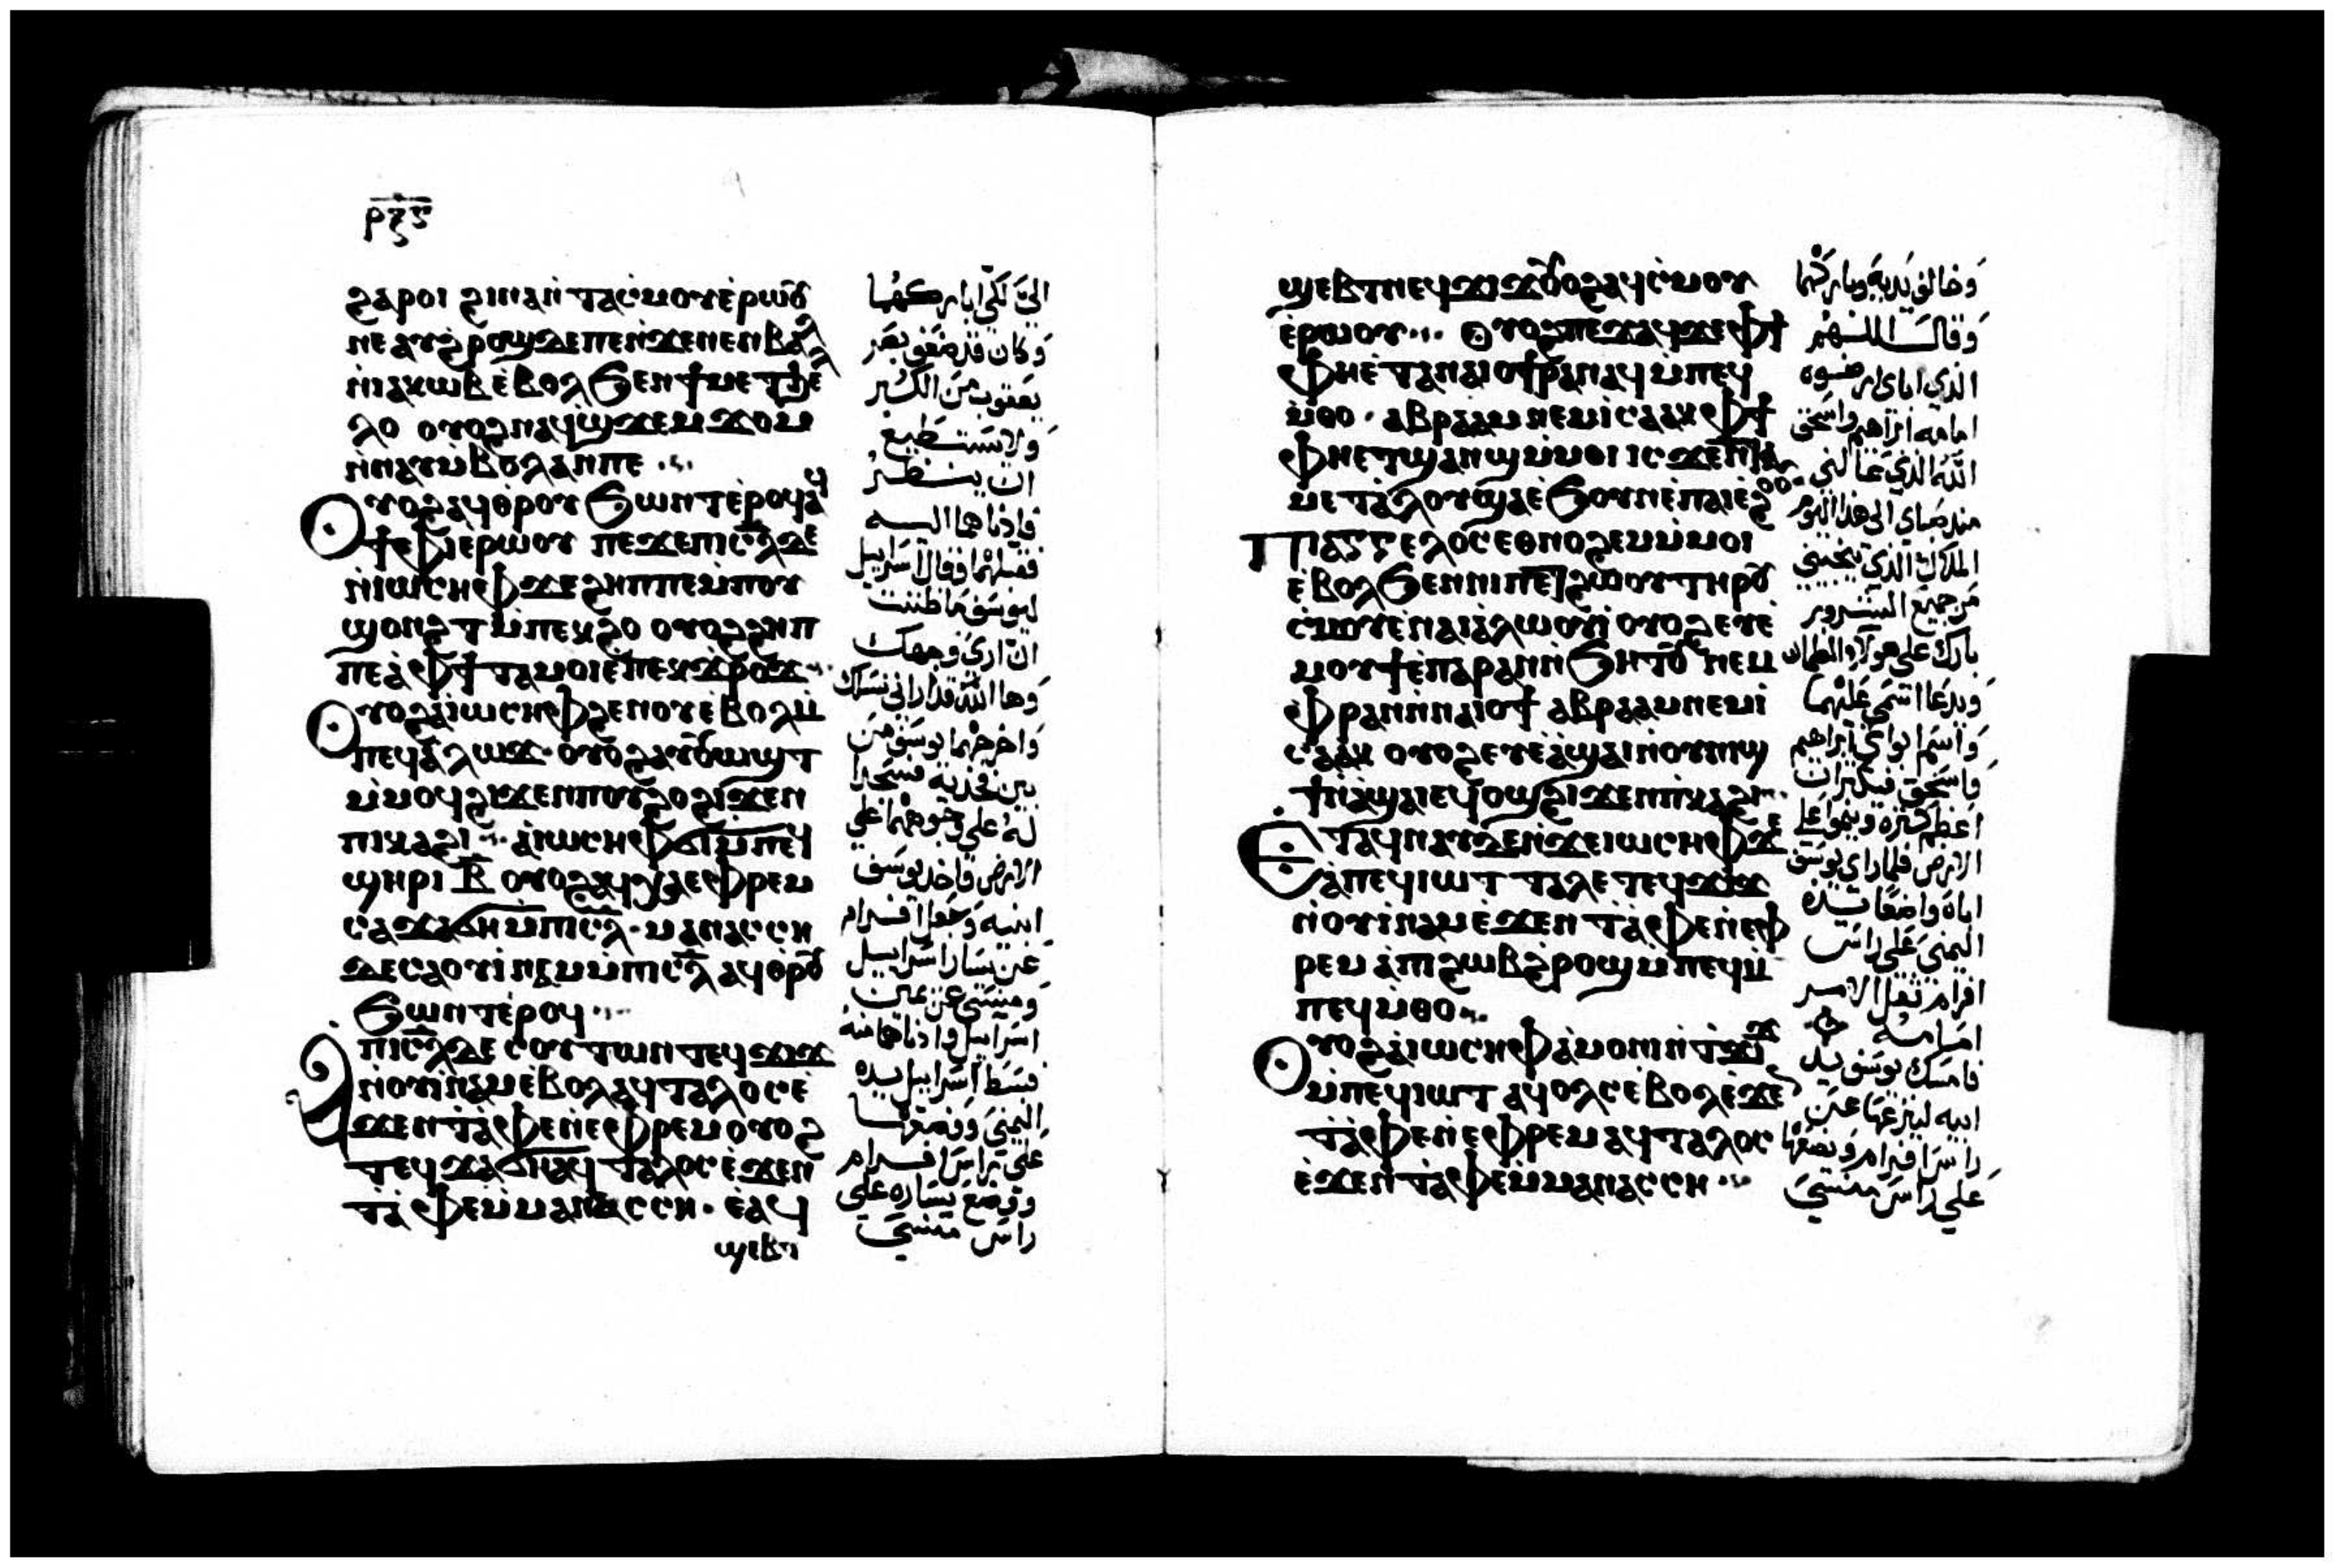 ⲣⲝⲋ
ϩⲁⲣⲟⲓ ϩⲓⲛⲁ ⲛ̀ⲧⲁⲥ̀ⲙⲟⲩ ⲉ̀ⲣⲱⲟⲩ
ⲛⲉ ⲁⲩϩ̀ⲣⲟϣ ⲇⲉ ⲡⲉ ⲛ̀ϫⲉ ⲛⲉⲛⲃⲁⲗ
ⲛ̀ⲓⲁⲕⲱⲃ ⲉ̀ⲃⲟⲗ ϧⲉⲛ ϯⲙⲉⲧϧⲉⲗ
ⲗⲟ ⲟⲩⲟϩ ⲛⲁϥϣϫⲉⲙϫⲟⲙ
ⲛ̀ⲛⲁⲩ ⲙ̀ⲃⲟⲗ ⲁⲛ ⲡⲉ
ⲟⲩⲟϩ ⲁϥⲑⲣⲟⲩϧⲱⲛⲧ ⲉ̀ⲣⲟϥ ⲁϥ
ϯⲫⲓ ⲉⲣⲱⲟⲩ ⲡⲉϫⲉ ⲡⲓⲥ̅ⲗ̅ ⲇⲉ
ⲛ̀ⲓⲱⲥⲏⲫ ϫⲉ ϩⲏⲡⲡⲉ ⲙ̀ⲡⲟⲩ
ϣⲟⲛϩⲧ ⲙ̀ⲡⲉⲕϩⲟ ⲟⲩⲟϩ ϩⲏⲡ
ⲡⲉ ⲁ̀ ⲫϯ ⲧⲁⲙⲟⲓ ⲉ̀ⲡⲉⲕϫⲣⲟϫ
ⲟⲩⲟϩ ⲁ̀ ⲓⲱⲥⲏⲫ ϩⲉⲛⲟⲩ ⲉ̀ⲃⲟⲗ ⲙ̀
ⲡⲉϥⲁ̀ⲗⲱϫ ⲟⲩⲟϩ ⲁⲩⲟⲩⲱϣⲧ
ⲙ̀ⲙⲟϥ ϩⲓϫⲉⲛ ⲡⲟⲩϩⲟ ϩⲓϫⲉⲛ
ⲡⲓⲕⲁϩⲓ ⲁ̀ ⲓⲱⲥⲏⲫ ϭⲓ ⲙ̀ⲡⲉϥ
ϣⲏⲣⲓ ⲃ̅ ⲟⲩⲟϩ ⲁϥⲭⲁ ⲉⲫⲣⲉⲙ
ⲥⲁϫⲁϭⲏ ⲙ̀ⲡⲓⲥ̅ⲗ̅ ⲙⲁⲛⲁⲥⲥⲏ
ⲇⲉ ⲥⲁⲟⲩⲓ̀ⲛⲁⲙ ⲙ̀ⲡⲓⲥ̅ⲗ̅ ⲁϥⲑⲣⲟⲩ
ϧⲱⲛⲧ ⲉ̀ⲣⲟϥ
ⲡⲓⲥ̅ⲗ̅ ⲇⲉ ⲥⲟⲩⲧⲱⲛ ⲧⲉϥϫⲓϫ
ⲛ̀ⲟⲩⲓ̀ⲛⲁⲙ ⲉ̀ⲃⲟⲗ ⲁϥⲧⲁⲗⲟⲥ ⲉ̀
ϫⲉⲛ ⲧ̀ⲁ̀ⲫⲉ ⲛ̀ⲉⲫⲣⲉⲙ ⲟⲩⲟϩ
ⲧⲉϥϫⲁϭⲏ ⲁϥⲧⲁⲗⲟⲥ ⲉ̀ϫⲉⲛ
ⲧ̀ⲁ̀ⲫⲉ ⲙ̀ⲙⲁⲛⲁⲥⲥⲏ ⲉ̀ⲁϥ
ϣⲉⲃⲧ
اليّ لكي اباركهما
وكان قد ضعف بصر
يعقوب من الكبر
ولا يستطيع
ان ينظر
فادناهما اليه
فقبلهما وقال اسراييل
ليوسف ما ظننت
ان اري وجهك
وها الله قد اراني نسلك
واخرجهما يوسف من
بين فخديه فسجدا
له علي وجوههما علي
الارض فاخد يوسف
ابنيه وجعل افرام
عن يسار اسراييل
ومنسي عن يمين
اسراييل وادناهما منه
فبسط اسراييل يده
اليمني وضعها
علي راس افرام
ووضع يساره علي
راس منسي
ϣⲉⲃⲧ ⲛⲉϥϫⲓϫ ⲟⲩⲟϩ ⲁϥⲥ̀ⲙⲟⲩ
ⲉ̀ⲣⲱⲟⲩ ⲟⲩⲟϩ ⲡⲉϫⲁϥ ϫⲉ ⲫϯ
ⲫⲏⲉ̀ⲧⲁ ⲛⲁⲓⲟϯ ⲣⲁⲛⲁϥ ⲙ̀ⲡⲉϥ
ⲙ̀ⲑⲟ ⲁⲃⲣⲁⲁⲙ ⲛⲉⲙ ⲓ̀ⲥⲁⲁⲕ ⲫϯ
ⲫⲏⲉⲧϣⲁⲛϣ ⲙ̀ⲙⲟⲓ ⲓⲥϫⲉⲛ ⲧⲁ
ⲙⲉⲧⲁ̀ⲗⲟⲩ ϣⲁ ⲉ̀ϧⲟⲩⲛ ⲉ̀ⲡⲁⲓⲉ̀ϩⲟⲟⲩ
ⲡⲓⲁⲅⲅⲉⲗⲟⲥ ⲉⲑⲛⲟϩⲉⲙ ⲙ̀ⲙⲟⲓ
ⲉ̀ⲃⲟⲗ ϧⲉⲛ ⲛⲓⲡⲉⲧϩⲱⲟⲩ ⲧⲏⲣⲟⲩ
ⲥ̀ⲙⲟⲩ ⲉ̀ⲛⲁⲓⲁ̀ⲗⲱⲟⲩⲓ̀ ⲟⲩⲟϩ ⲉⲩⲉ̀
ⲙⲟⲩϯ ⲉ̀ⲡⲁⲣⲁⲛ ⲛ̀ϧⲏⲧⲟⲩ ⲛⲉⲙ
ⲫⲣⲁⲛ ⲛ̀ⲛⲁⲓⲟϯ ⲁⲃⲣⲁⲁⲙ ⲛⲉⲙ ⲓ̀
ⲥⲁⲁⲕ ⲟⲩⲟϩ ⲉⲩⲉ̀ⲁ̀ϣⲁⲓ ⲛ̀ⲟⲩⲛⲓϣ
ϯ ⲛ̀ⲁ̀ϣⲁⲓ ⲉϥⲟϣ ϩⲓϫⲉⲛ ⲡⲓⲕⲁϩⲓ
ⲉ̀ⲧⲁϥⲛⲁⲩ ⲇⲉ ⲛ̀ϫⲉ ⲓⲱⲥⲏⲫ ϫⲉ
ⲁ̀ ⲡⲉϥⲓⲱⲧ ⲧⲁⲗⲉ ⲧⲉϥϫⲓϫ
ⲛ̀ⲟⲩⲓ̀ⲛⲁⲙ ⲉ̀ϫⲉⲛ ⲧ̀ⲁ̀ⲫⲉ ⲛ̀ⲉⲫ
ⲣⲉⲙ ⲁ̀ ⲡⲓϩⲱⲃ ϩ̀ⲣⲟϣ ⲙ̀ⲡⲉϥⲙ̀
ⲡⲉϥⲙ̀ⲑⲟ
ⲟⲩⲟϩ ⲁ̀ ⲓⲱⲥⲏⲫ ⲁ̀ⲙⲟⲛⲓ ⲛ̀ⲧ̀ϫⲓϫ
ⲙ̀ⲡⲉϥⲓⲱⲧ ⲁϥⲟⲗⲥ ⲉ̀ⲃⲟⲗ ⲉ̀ϫⲉⲛ
ⲧ̀ⲁ̀ⲫⲉ ⲛ̀ⲉⲫⲣⲉⲙ ⲁϥⲧⲁⲗⲟⲥ
ⲉ̀ϫⲉⲛ ⲧ̀ⲁ̀ⲫⲉ ⲙ̀ⲙⲁⲛⲁⲥⲥⲏ
وخالف يديه وباركهما
وقال اللهم
الذي اباي ارضوه
امامه ابراهيم واسحق
الله الذي عالني
مند صباي الي هدا اليوم
الملاك الذي نجيني
من جميع الشرور
بارك علي هولا الغلمان
ويدعا اسمي عليهما
واسم ابواي ابراهيم
واسحق فيكثران
اعظم كثره علي
الارض فلما راي يوسف
اباه واضعا يده
اليمني علي راس
افرام ثقل الامر
امامه
فامسك يوسف يد
ابيه لينزعها عن
راس افرام ويضعها
علي راس منسي